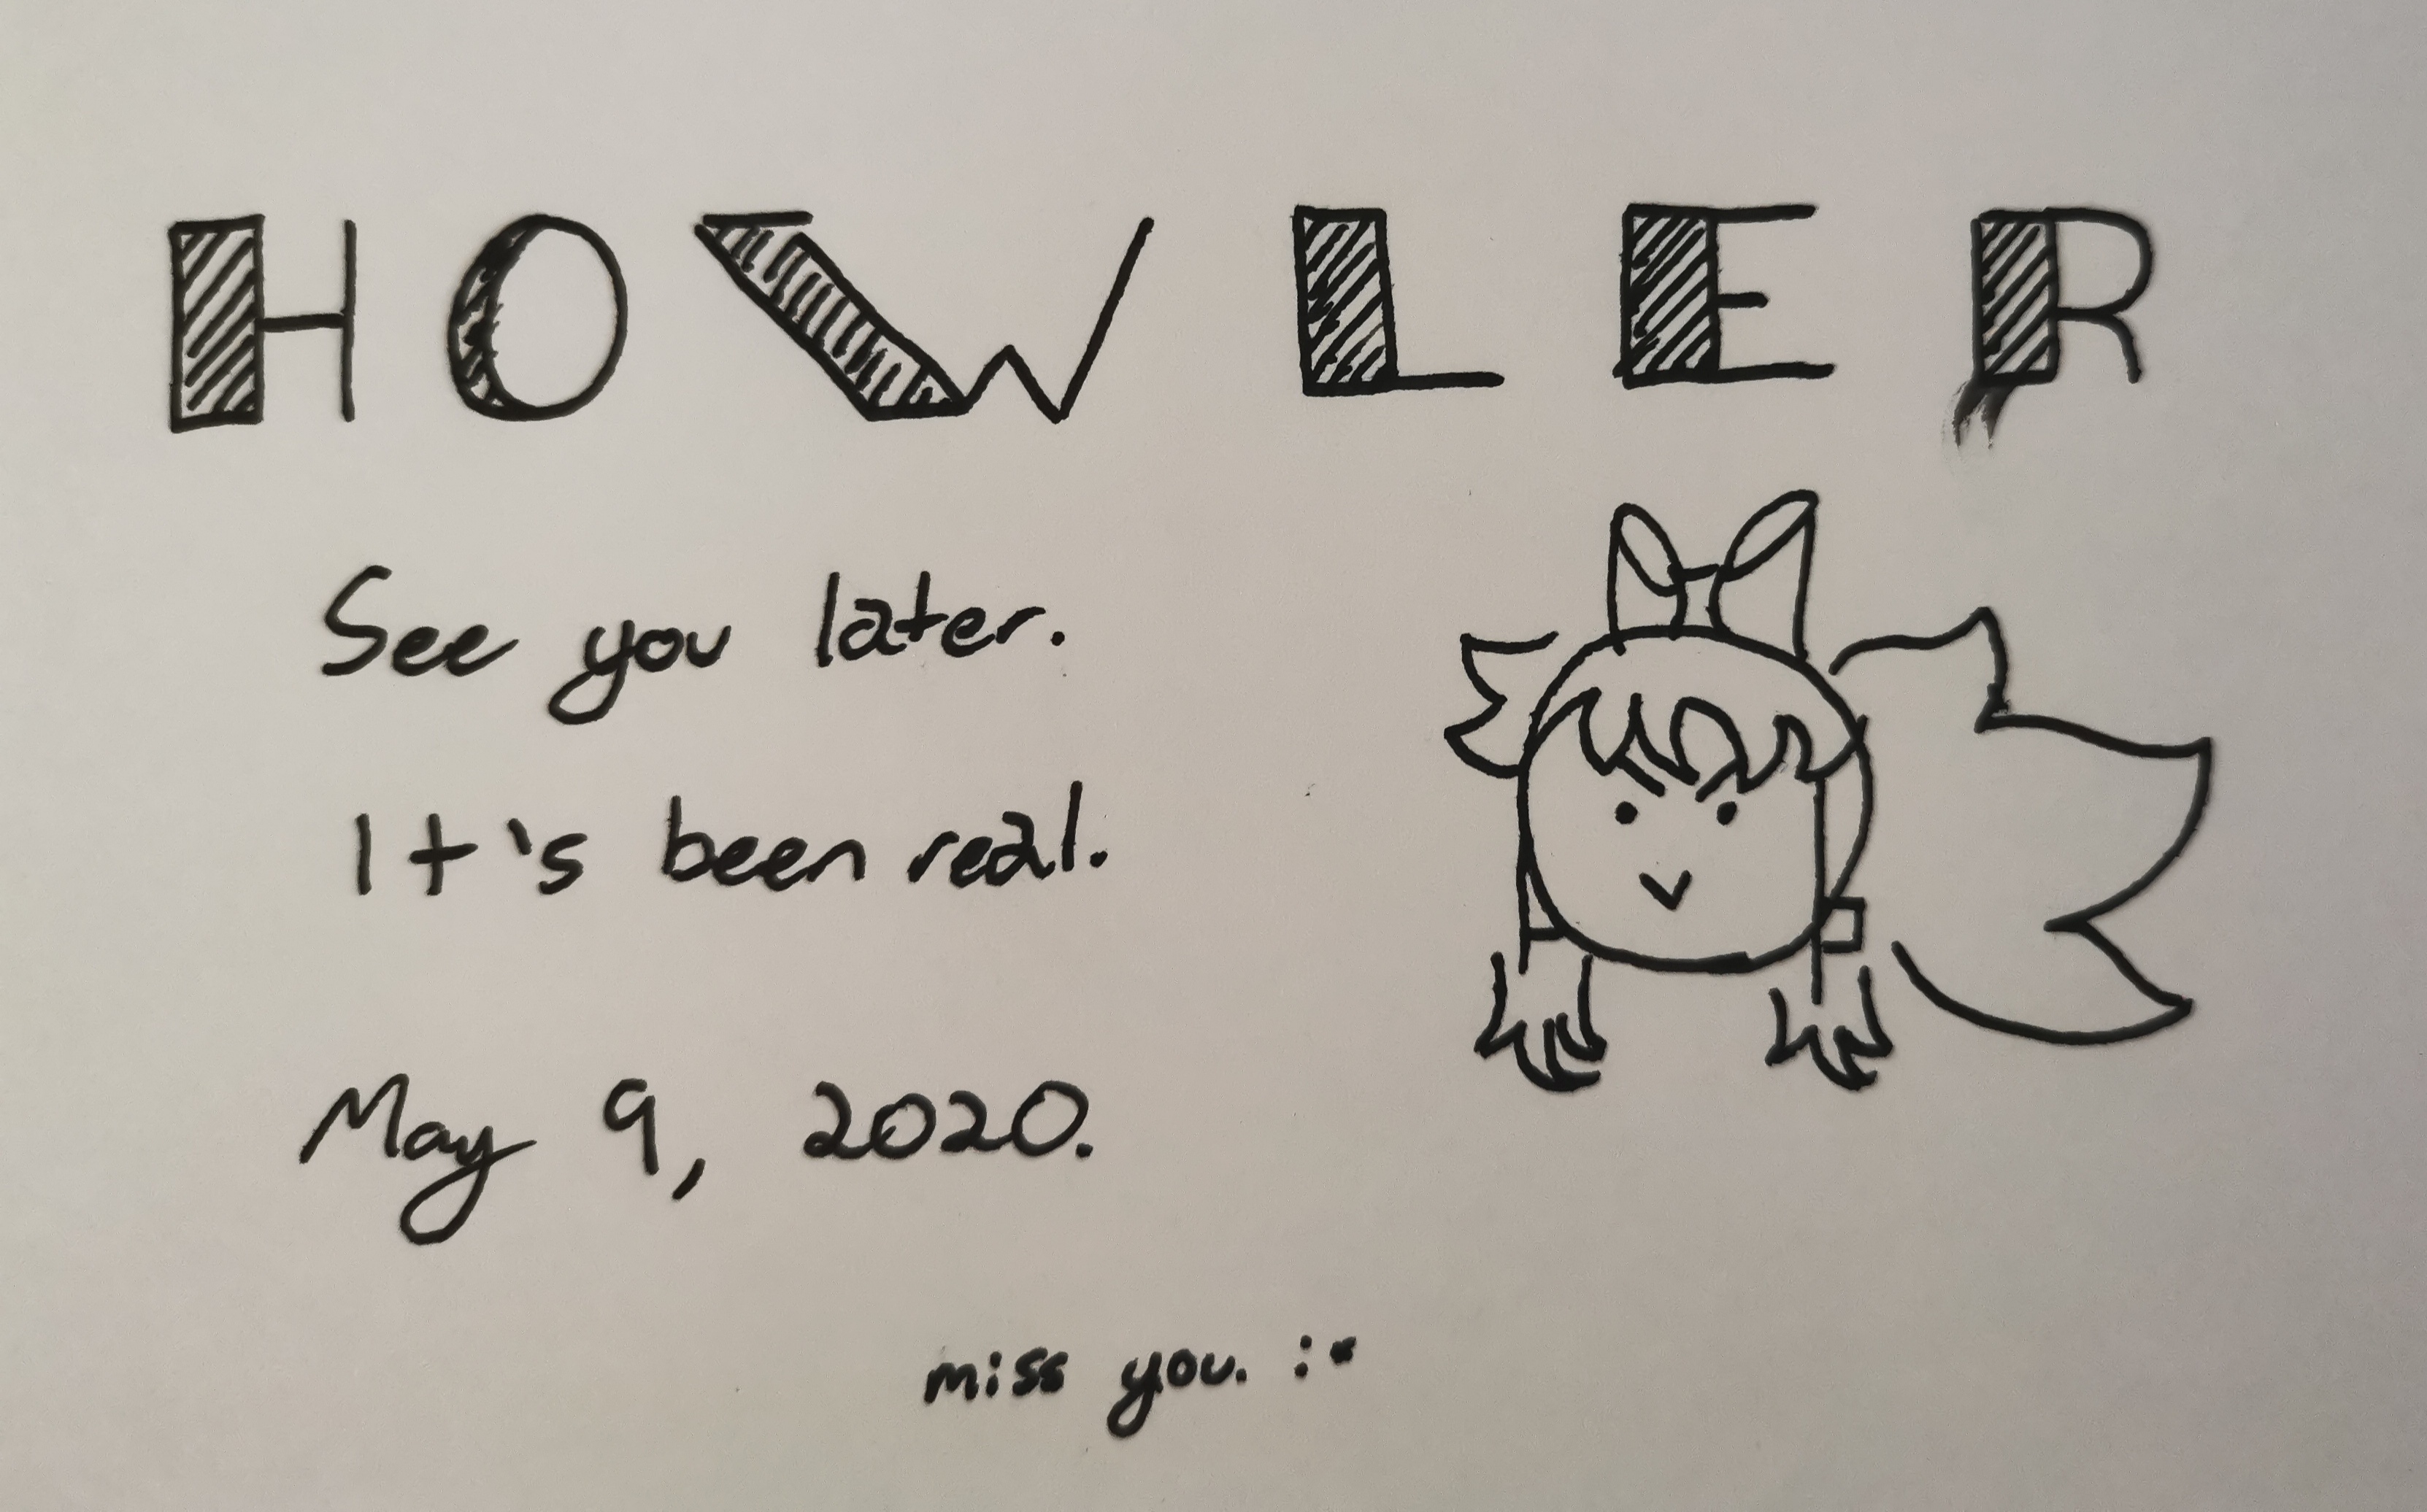 HOWLER
See you later.
It's been real.
May 9, 2020.
miss you. :•